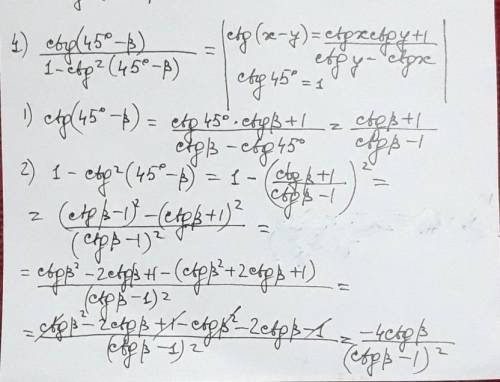 4) ctg(45°-β) / 1-ctg²(45°-β) = | ctg(x-y) = ctgxctgy+1 / ctgy - ctgx
ctg45° = 1 |
1) ctg(45°-β) = ctg45°·ctgβ+1 / ctgβ - ctg45° = ctgβ+1 / ctgβ-1
2) 1-ctg²(45°-β) = 1-(ctgβ+1 / ctgβ-1)² =
= (ctgβ-1)²-(ctgβ+1)² / (ctgβ-1)² =
= ctgβ²-2ctgβ+1-(ctgβ²+2ctgβ+1) / (ctgβ-1)² =
= ctgβ²-2ctgβ+1-ctgβ²-2ctgβ-1 / (ctgβ-1)² = -4ctgβ / (ctgβ-1)²